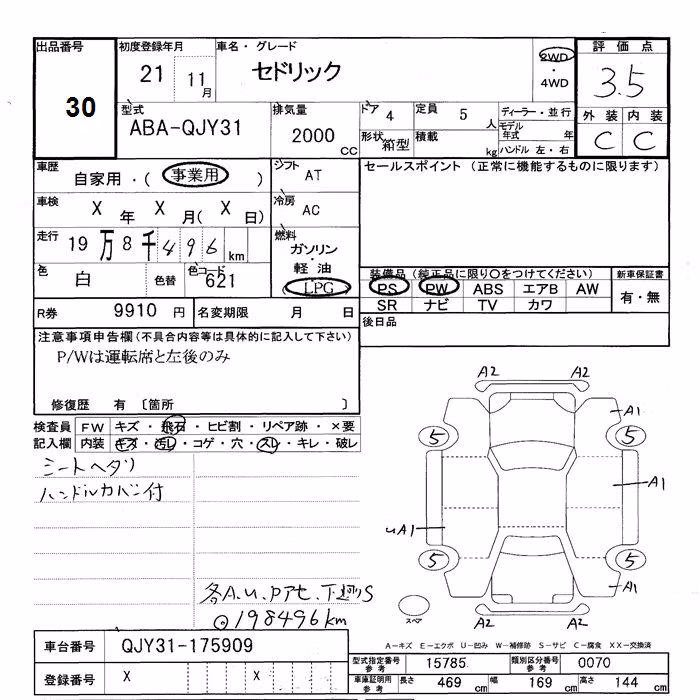 出品番号 初度登録年月 車名・グレード 評価点
30
21 11月 セドリック 2WD ・ 4WD 3.5
型式 排気量 ドア 4 定員 5 人 ディーラー・並行 外装 内装
ABA-QJY31 2000 CC 形状 箱型 積載 kg モデル年式 年 ハンドル 左・右 C C
車歴 自家用・( 事業用 ) シフト AT セールスポイント (正常に機能するものに限ります)
車検 X 年 X 月( X 日) 冷房 AC
走行 19万8千496 km 燃料 ガソリン・軽油 (LPG)
色 白 色替 色コード 621
装備品(純正品に限り〇をつけてください) 新車保証書
PS PW ABS エアB AW 有・無
SR ナビ TV カワ
R券 9910 円 名変期限 月 日
後日品
注意事項申告欄(不具合内容等は具体的に記入して下さい)
P/Wは運転席と左後のみ
修復歴 有 〔箇所 〕
検査員 FW キズ・飛石・ヒビ割・リペア跡・×要
記入欄 内装 キズ・汚レ・コゲ・穴・スレ・キレ・破レ
シートヘタリ
ハンドルカバー付
A2 A2
A1
5 5
A1
uA1
5 5
A1
スペア
A2 A2
各A.U.Pアセ.下廻りS
◎198496km
A-キズ E-エクボ U-凹み W-補修跡 S-サビ C-腐食 XX-交換済
車台番号 QJY31-175909
登録番号 X X
型式指定番号 参考 15785 類別区分番号 参考 0070
車庫証明用 参考 長さ 469 cm 幅 169 cm 高さ 144 cm